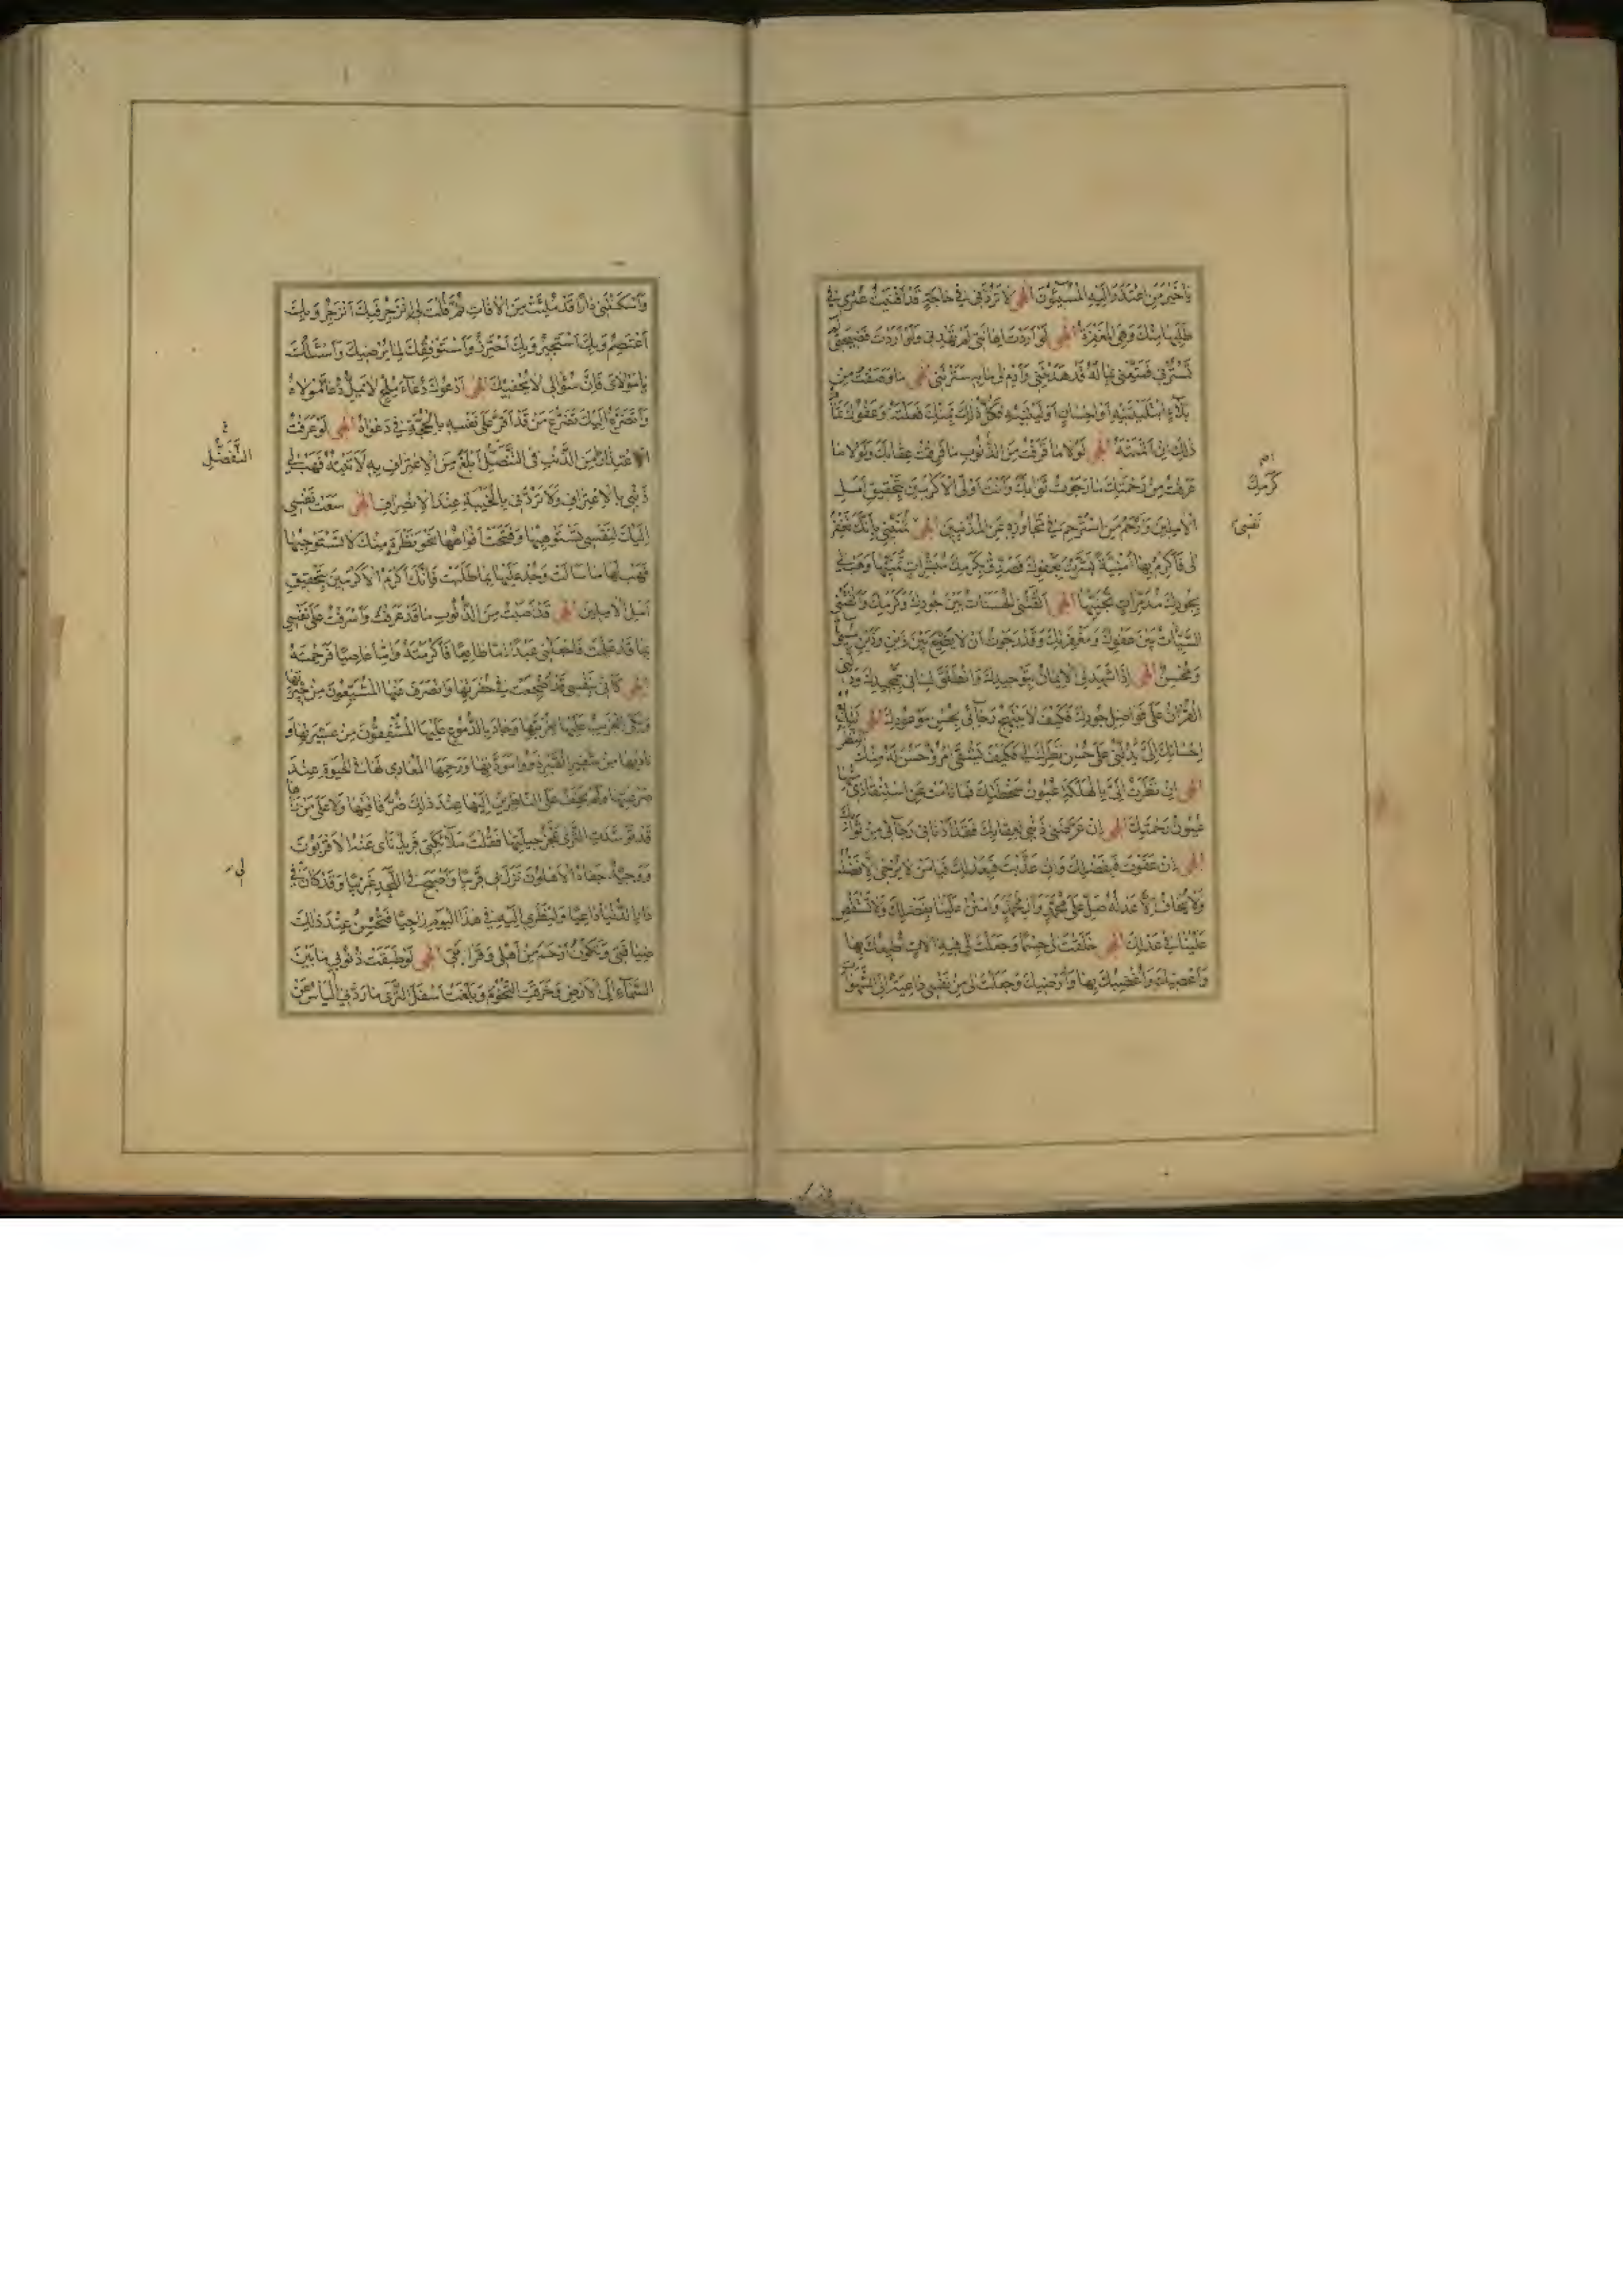 يا خَيْرَ مَنِ اعْتَذَرَ اِلَيْهِ الْمُسيئُونَ اِلهى لا تَرُدَّنى فى حاجَةٍ قَدْ اَفْنَيْتُ عُمْرى فى
طَلَبِها مِنْكَ وَهِىَ الْمَغْفِرَةُ اِلهى لَوْ اَرَدْتَ اِهانَتى لَمْ تَهْدِنى وَلَوْ اَرَدْتَ فَضيحَتى لَمْ
تَسْتُرْنى فَمَتِّعْنى بِما لَهُ قَدْ هَدَيْتَنى وَاَدِمْ لى ما بِهِ سَتَرْتَنى اِلهى ما وَصَفْتُ مِنْ
بَلآءٍ ابْتَلَيْتَنيهِ اَوْ اِحْسانٍ اَوْلَيْتَنيهِ فَكُلُّ ذلِكَ بِمَنِّكَ فَعَلْتَهُ وَعَفْوُكَ تَمامُ
ذلِكَ اِنْ اَتْمَمْتَهُ اِلهى لَوْلا ما قَرَفْتُ مِنَ الذُّنُوبِ ما فَرِقْتُ عِقابَكَ وَلَوْلا ما
عَرَفْتُ مِنْ رَحْمَتِكَ ما رَجَوْتُ ثَوابَكَ وَاَنْتَ اَوْلَى الْاَكْرَمينَ بِتَحْقيقِ اَمَلِ
الْامِلينَ وَاَرْحَمُ مَنِ اسْتُرْحِمَ فى تَجاوُزِهِ عَنِ الْمُذْنِبينَ اِلهى تُمَنّينى بِاَنَّكَ تَغْفِرُ
لى فَاَكْرِمْ بِها اُمْنِيَّةً بَشَّرَتْ بِعَفْوِكَ فَصَدِّقْ بِكَرَمِكَ مُبَشِّراتِ تَمَنّيها وَهَبْ لى
بِجُودِكَ مُدَبِّراتِ تَجَنّيها اِلهى اَلْقَتْنِى الْحَسَناتُ بَيْنَ جُودِكَ وَكَرَمِكَ وَاَلْقَتْنِى
السَّيِّئاتُ بَيْنَ عَفْوِكَ وَمَغْفِرَتِكَ وَقَدْ رَجَوْتُ اَنْ لا يَضيعَ بَيْنَ ذَيْنِ وَذَيْنِ مُسىءٌ
وَمُحْسِنٌ اِلهى اِذا شَهِدَ لِىَ الْايمانُ بِتَوْحيدِكَ وَانْطَلَقَ لِسانى بِتَمْجيدِكَ وَدَلَّنِى
الْقُرْانُ عَلى فَواضِلِ جُودِكَ فَكَيْفَ لا يَبْتَهِجُ رَجآئى بِحُسْنِ مَوْعُودِكَ اِلهى تَتابُعُ
اِحْسانِكَ اِلَىَّ يَدُلُّنى عَلى حُسْنِ نَظَرِكَ لى فَكَيْفَ يَشْقَى امْرُؤٌ حَسُنَ لَهُ مِنْكَ النَّظَرُ
اِلهى اِنْ نَظَرَتْ اِلَىَّ بِالْهَلَكَةِ عُيُونُ سَخْطَتِكَ فَما نامَتْ عَنِ اسْتِنْقاذى مِنْها
عُيُونُ رَحْمَتِكَ اِلهى اِنْ عَرَّضَنى ذَنْبى لِعِقابِكَ فَقَدْ اَدْنانى رَجآئى مِنْ ثَوابِكَ
اِلهى اِنْ عَفَوْتَ فَبِفَضْلِكَ وَاِنْ عَذَّبْتَ فَبِعَدْلِكَ فَيامَنْ لا يُرْجى اِلّا فَضْلُهُ
وَلا يُخافُ اِلّا عَدْلُهُ صَلِّ عَلى مُحَمَّدٍ وَالِ مُحَمَّدٍ وَامْنُنْ عَلَيْنا بِفَضْلِكَ وَلا تَسْتَقْصِ
عَلَيْنا فى عَدْلِكَ اِلهى خَلَقْتَ لى جِسْمًا وَجَعَلْتَ لى فيهِ الاتٍ اُطيعُكَ بِها
وَاَعْصيكَ وَاُغْضِبُكَ بِها وَاُرْضيكَ وَجَعَلْتَ لى مِنْ نَفْسى داعِيَةً اِلَى الشَّهَواتِ
كَرَمِكَ
نَفْسى
وَاَسْكَنْتَنى دارًا قَدْ مُلِئَتْ مِنَ الْافاتِ ثُمَّ قُلْتَ لى اِنْزَجِرْ فَبِكَ اَنْزَجِرُ وَبِكَ
اَعْتَصِمُ وَبِكَ اَسْتَجيرُ وَبِكَ اَحْتَرِزُ وَاَسْتَوْفِقُكَ لِما يُرْضيكَ وَاَسْئَلُكَ
يا مَوْلاىَ فَاِنَّ سُؤالى لا يُحْفيكَ اِلهى اَدْعُوكَ دُعآءَ مُلِحٍّ لا يَمَلُّ دُعآءَ مَوْلاهُ
وَاَتَضَرَّعُ اِلَيْكَ تَضَرُّعَ مَنْ قَدْ اَقَرَّ عَلى نَفْسِهِ بِالْحُجَّةِ فى دَعْواهُ اِلهى لَوْ عَرَفْتُ
اعْتِذارًا مِنَ الذَّنْبِ فِى التَّنَصُّلِ اَبْلَغَ مِنَ الْاِعْتِرافِ بِهِ لَاَتَيْتُهُ فَهَبْ لى
ذَنْبى بِالْاِعْتِرافِ وَلا تَرُدَّنى بِالْخَيْبَةِ عِنْدَ الْاِنْصِرافِ اِلهى سَعَتْ نَفْسى
اِلَيْكَ لِنَفْسى تَسْتَوْهِبُها وَفَتَحَتْ اَفْواهَها نَحْوَ نَظْرَةٍ مِنْكَ لا تَسْتَوْجِبُها
فَهَبْ لَها ما سَاَلَتْ وَجُدْ عَلَيْها بِما طَلَبَتْ فَاِنَّكَ اَكْرَمُ الْاَكْرَمينَ بِتَحْقيقِ
اَمَلِ الْامِلينَ اِلهى قَدْ اَصَبْتُ مِنَ الذُّنُوبِ ما قَدْ عَرَفْتَ وَاَسْرَفْتُ عَلى نَفْسى
بِما قَدْ عَلِمْتَ فَاجْعَلْنى عَبْدًا اِمّا طائِعًا فَاَكْرَمْتَهُ وَاِمّا عاصِيًا فَرَحِمْتَهُ
اِلهى كَاَنّى بِنَفْسى قَدْ اُضْجِعَتْ فى حُفْرَتِها وَانْصَرَفَ عَنْهَا الْمُشَيِّعُونَ مِنْ جيرَتِها
وَبَكَى الْغَريبُ عَلَيْها لِغُرْبَتِها وَجادَ بِالدُّمُوعِ عَلَيْهَا الْمُشْفِقُونَ مِنْ عَشيرَتِها وَ
ناداها مِنْ شَفيرِ الْقَبْرِ ذَوُوا مَوَدَّتِها وَرَحِمَهَا الْمُعادى لَها فِى الْحَيوةِ عِنْدَ
صَرْعَتِها وَلَمْ يَخْفَ عَلَى النّاظِرينَ اِلَيْها عِنْدَ ذلِكَ ضُرُّ فاقَتِها وَلا عَلى مَنْ رَاها
قَدْ تَوَسَّدَتِ الثَّرى عَجْزُ حيلَتِها فَقُلْتَ مَلآئِكَتى فَريدٌ نَاى عَنْهُ الْاَقْرَبُونَ
وَوَحيدٌ جَفاهُ الْاَهْلُونَ نَزَلَ بى قَريبًا وَاَصْبَحَ فِى اللَّحْدِ غَريبًا وَقَدْ كانَ فى
دارِ الدُّنْيا داعِيًا وَلِنَظَرى اِلَيْهِ فى هذَا الْيَوْمِ راجِيًا فَتُحْسِنُ عِنْدَ ذلِكَ
ضِيافَتى وَتَكُونُ اَرْحَمَ بى مِنْ اَهْلى وَقَرابَتى اِلهى لَوْ طَبَّقَتْ ذُنُوبى ما بَيْنَ
السَّمآءِ اِلَى الْاَرْضِ وَخَرَقَتِ النُّجُومَ وَبَلَغَتْ اَسْفَلَ الثَّرى ما رَدَّنِى الْيَاْسُ عَنْ
التَّفَضُّلِ
لى